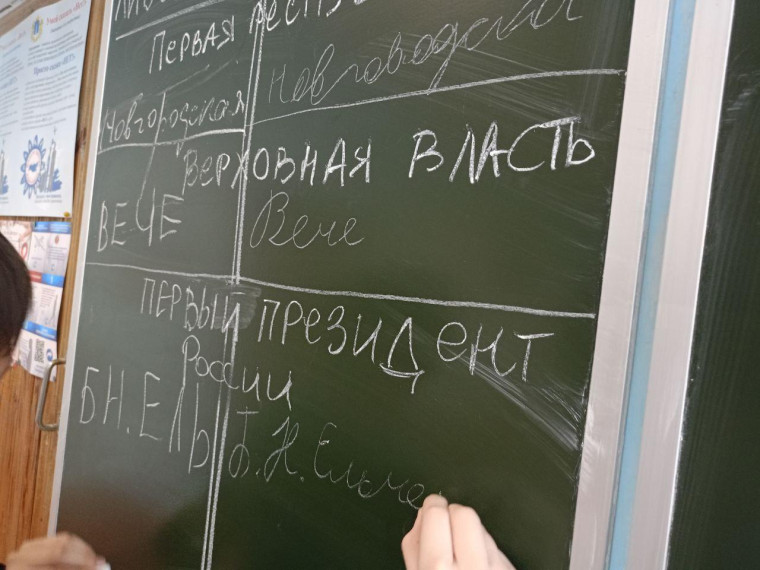 ПЕРВАЯ РЕСПУ
Новгородская Новговодска
ВЕРХОВНАЯ ВЛАСТЬ
ВЕЧЕ Вече
ПЕРВЫЙ ПРЕЗИДЕНТ
России
БН.ЕЛЬ Б.Н. Ельце